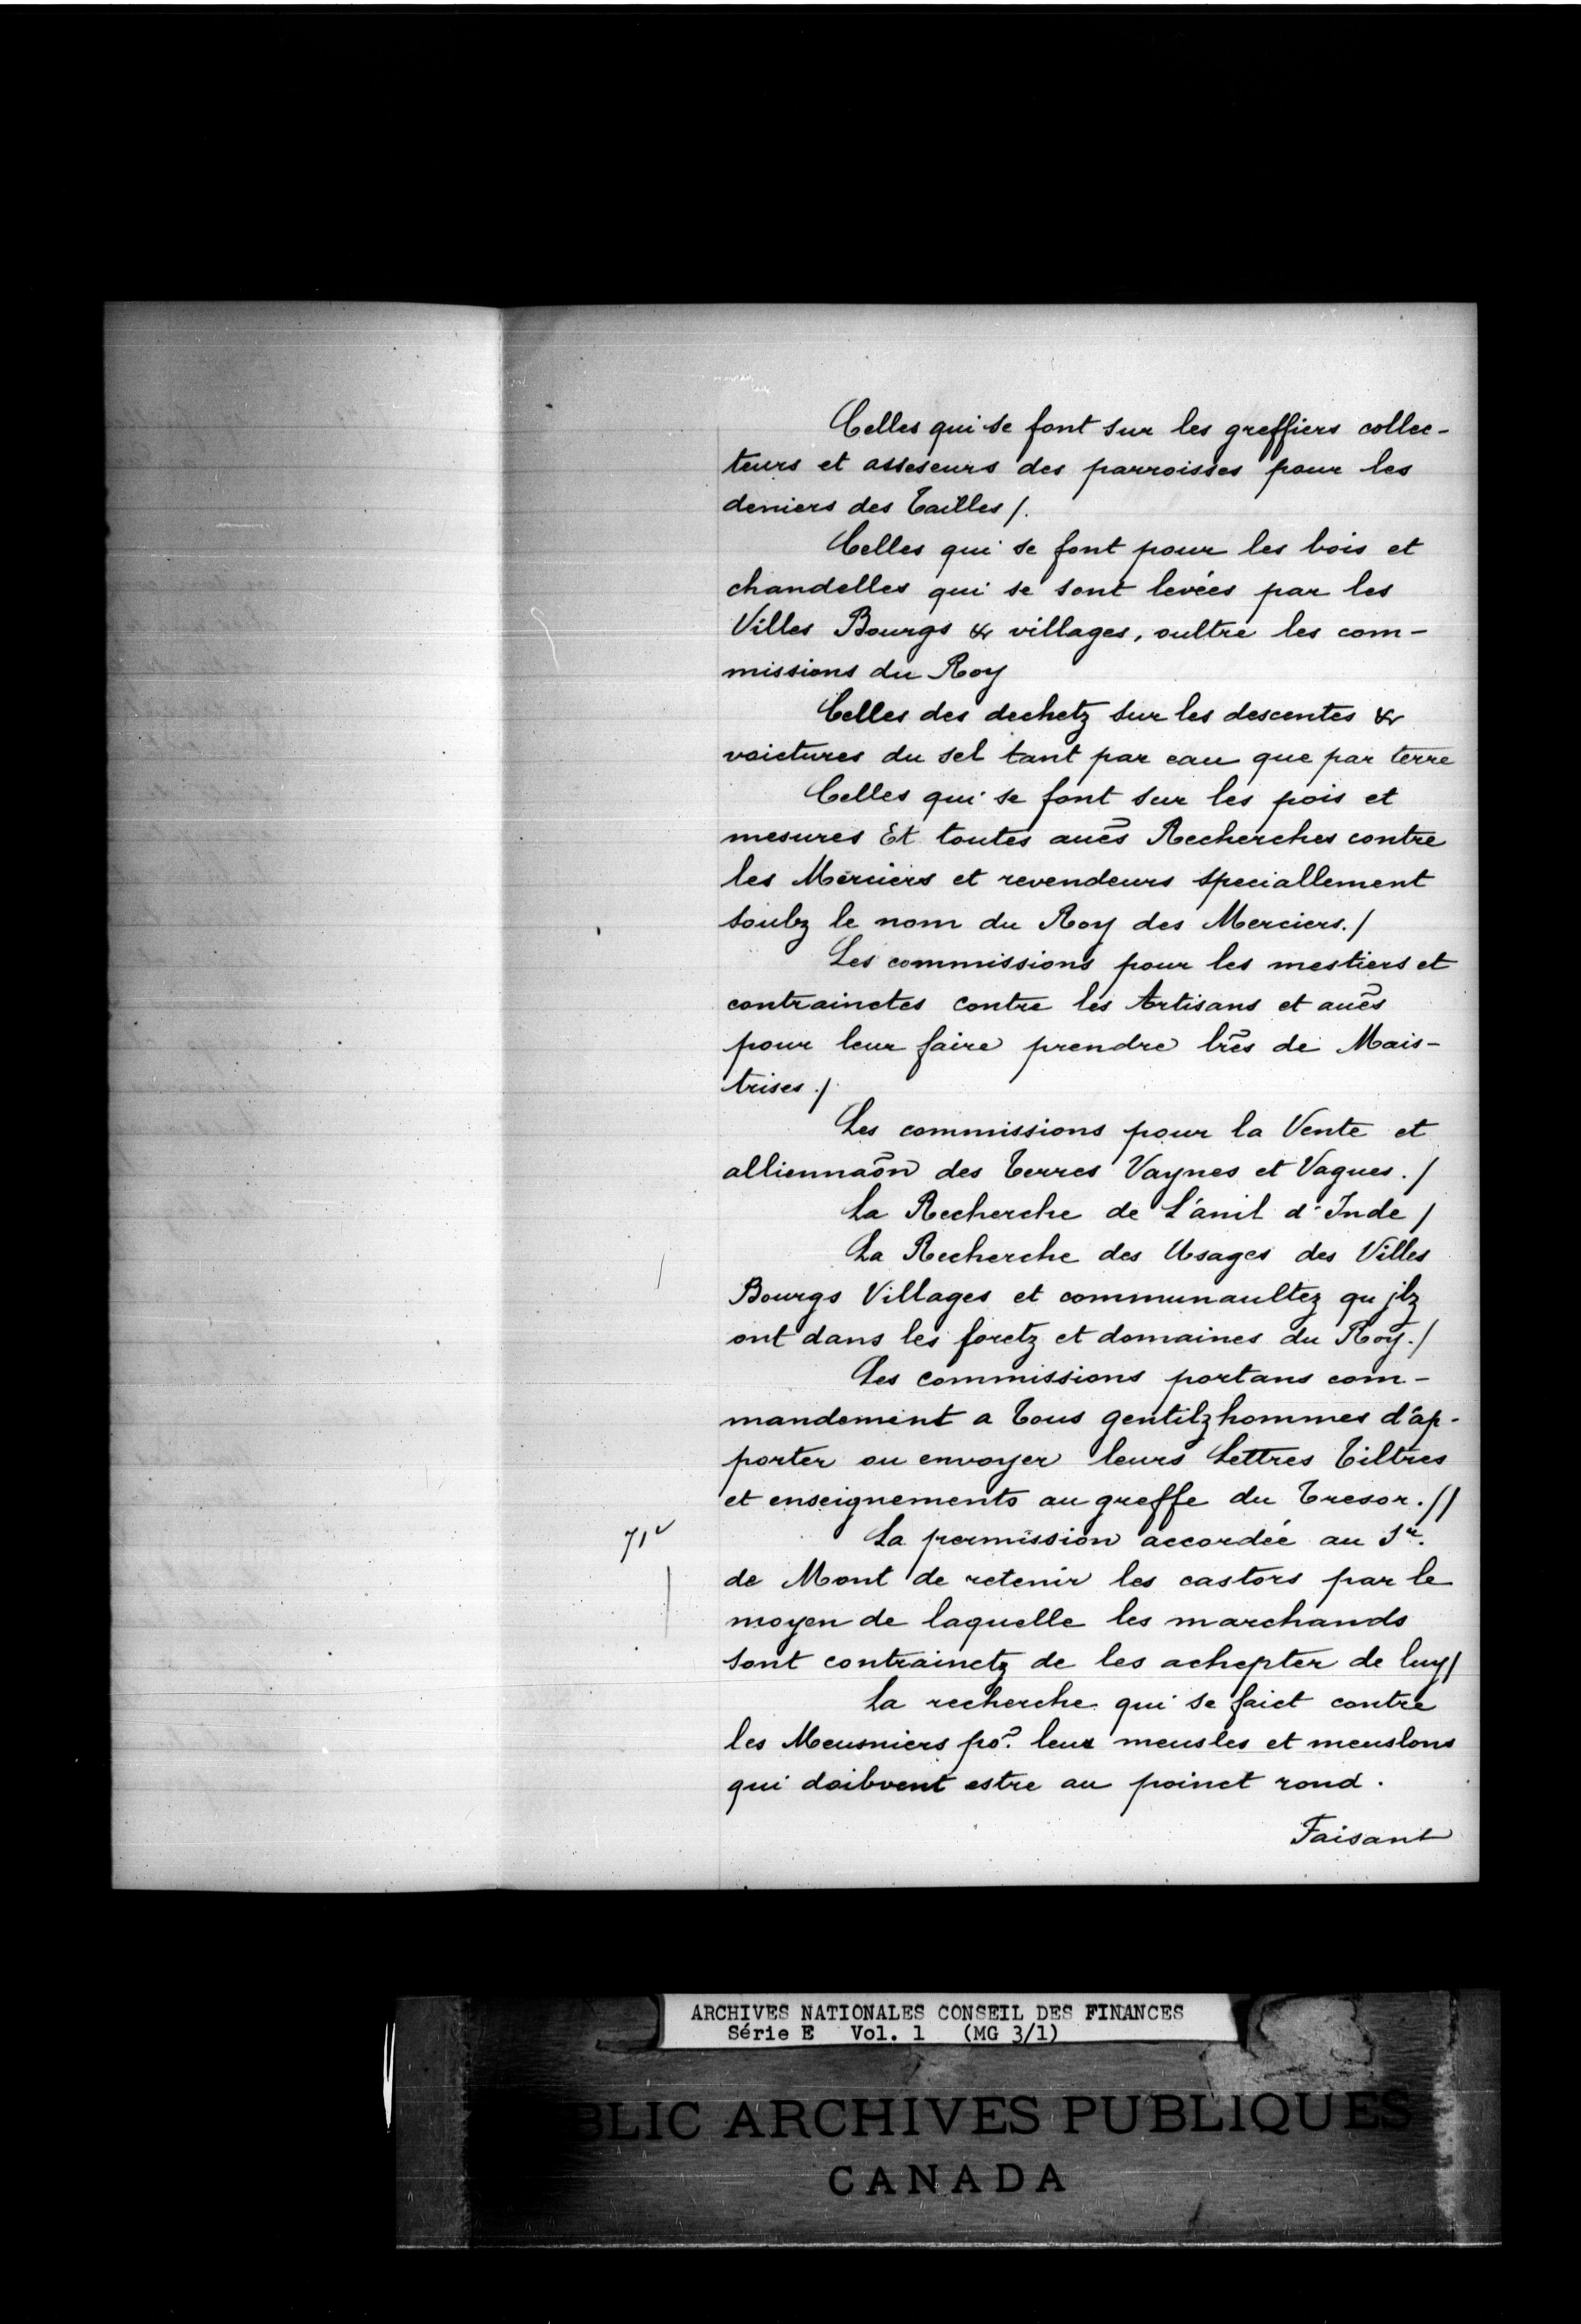 Celles qui se font sur les greffiers collec-
teurs et asseseurs des parroisses pour les
deniers des Tailles /.
Celles qui se font pour les bois et
chandelles qui se sont levées par les
Villes Bourgs & villages, oultre les com-
missions du Roy
Celles des dechetz sur les descentes &
voictures du sel tant par eau que par terre
Celles qui se font sur les pois et
mesures Et toutes auēs Recherches contre
les Merciers et revendeurs speciallement
soubz le nom du Roy des Merciers./
Les commissions pour les mestiers et
contrainctes contre les Artisans et auēs
pour leur faire prendre lrēs de Mais-
trises./
Les commissions pour la Vente et
allienaaōn des Terres Vaynes et Vagues./
La Recherche de L'anil d'Inde /
La Recherche des Usages des Villes
Bourgs Villages et communaultez qu jlz
ont dans les foretz et domaines du Roy./
Les commissions portans com-
mandement a Tous gentilzhommes d'ap-
porter ou envoyer leurs Lettres Tiltres
et enseignements au greffe du Tresor.//
71v
La permission accordée au Sr.
de Mont de retenir les castors par le
moyen de laquelle les marchands
sont contrainctz de les achepter de luy/
La recherche qui se faict contre
les Meusniers po? leur meusles et meuslons
qui doibvent estre au poinct rond.
Faisant
ARCHIVES NATIONALES CONSEIL DES FINANCES
Série E Vol. 1 (MG 3/1)
BLIC ARCHIVES PUBLIQUES
CANADA